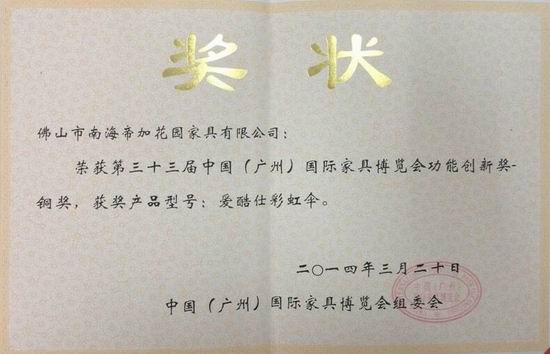 奖状
佛山市南海帝加花园家具有限公司：
荣获第三十三届中国（广州）国际家具博览会功能创新奖-
铜奖，获奖产品型号：爱酷仕彩虹伞。
二〇一四年三月二十日
中国（广州）国际家具博览会组委会